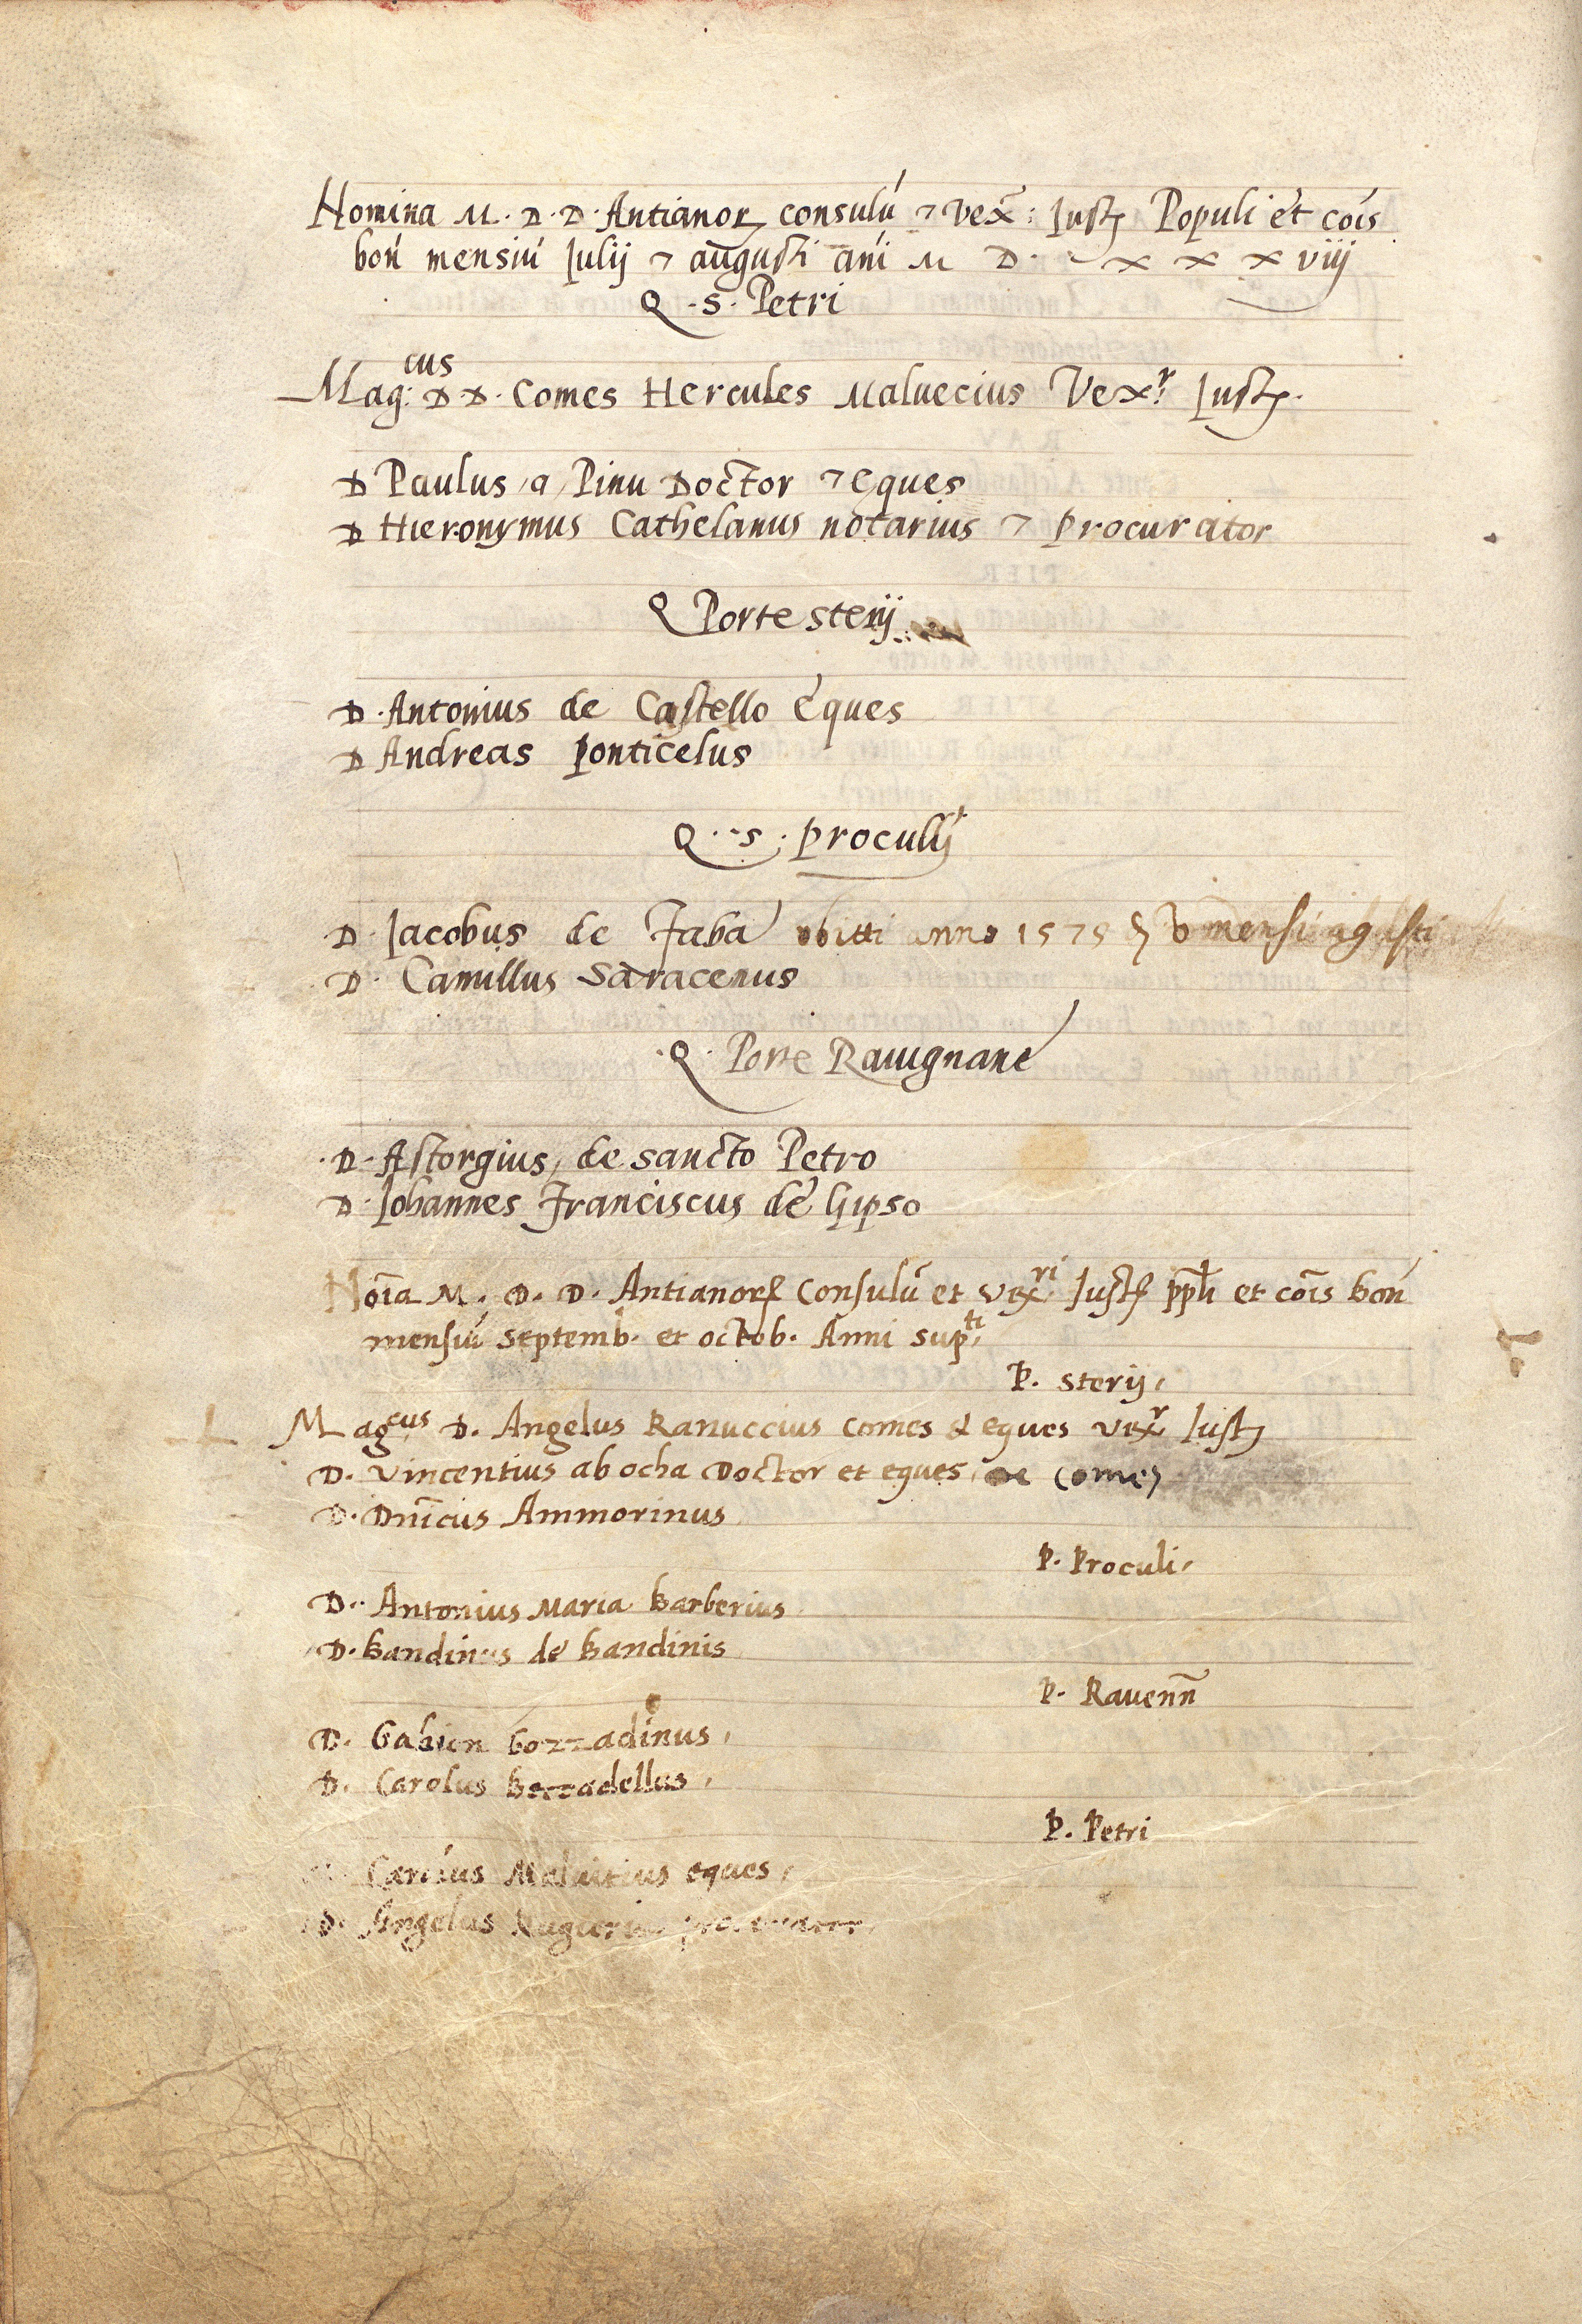 Nomina M. D. D. Antianorꝝ consulū ⁊ vex̄: Justꝭ Populi et cōis
bon̄ mensiū Julij ⁊ augusti ani M D x x x viij
Q. S. Petri
Mag:cus D. D. Comes Hercules Maluecius Vex.r Justꝭ.
D Paulus a Pinu Doctor ⁊ Eques
D Hieronymus Cathelanus notarius ⁊ procurator
Q Porte sterij
D. Antonius de Castello Eques
D Andreas ponticelus
Q. S. proculij
D. Jacobus de Faba obitti anno 1575 mensi agusti
D. Camillus Saracenus
Q. Porte Rauignane
D. Astorgius de sancto Petro
D. Johannes Franciscus de Gipso
Noīa M. D. D. Antianorꝝ Consulū et vex.ri Justꝭ ppli et cōis bon̄
mensiū septemb. et octob. Anni sup.ti
P. sterij,
Magcus D. Angelus Ranuccius comes & eques vexr Justꝭ
D. Vincentius ab ocha Doctor et eques, comes
D. Dn̄icus Ammorinus
P. Proculi,
D. Antonius Maria Barberius
D. Bandinus de Bandinis
P. Rauenn̄
D. Gozzadinus,
D. Carolus Bezzadellus,
P. Petri
Maluitius eques,
D. Angelus